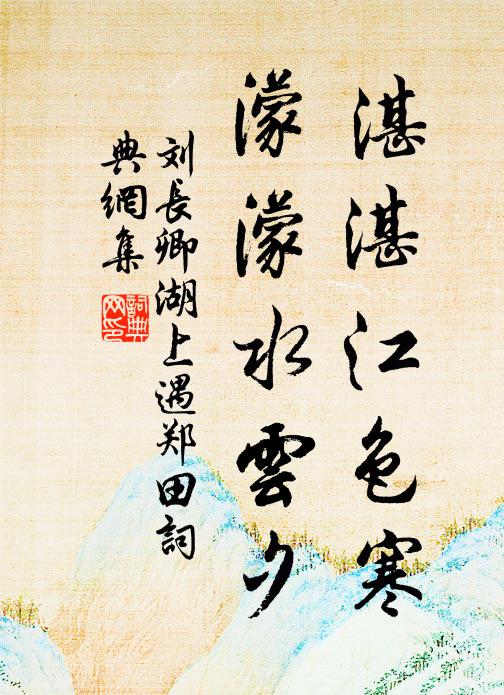 湛湛江色寒
濛濛水雲夕
刘長卿湖上遇郑田詞
典網集
詞典
网印